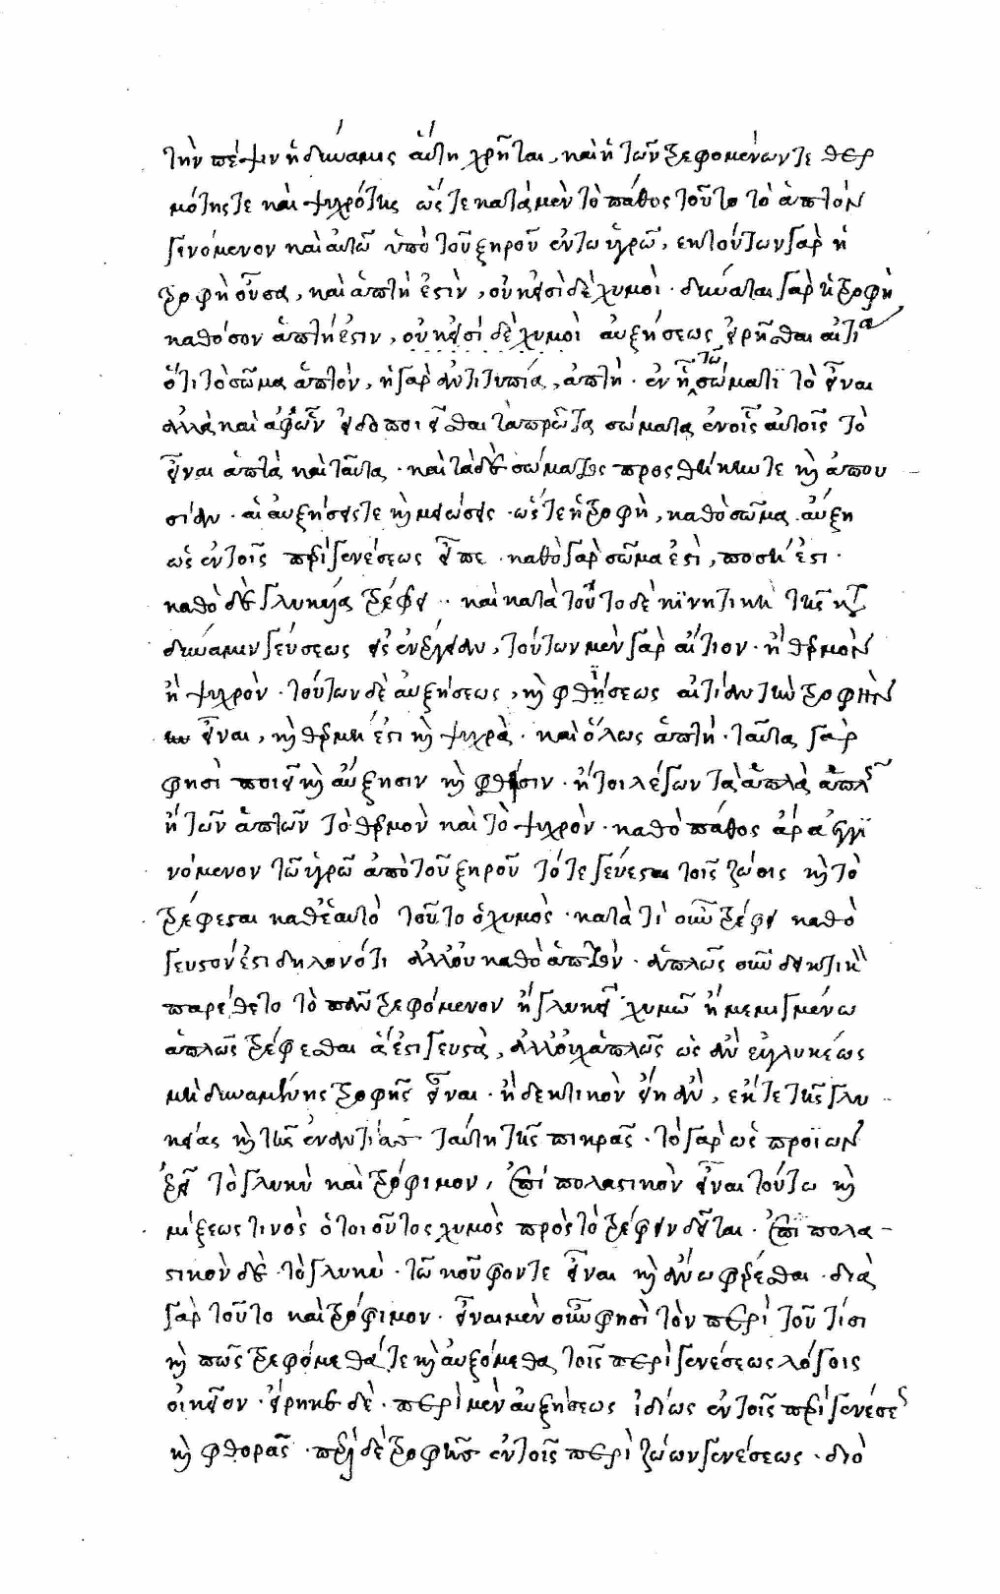 τὴν πέψιν ἡ δύναμις αὕτη χρῆται, καὶ ἡ τῶν τρεφομένων τε θερ
μότης τε καὶ ψυχρότης ὥστε κατὰ μὲν τὸ πάθος τοῦτο τὸ ἁπτὸν
γινόμενον καὶ αὐτῶ ὑπὸ τοῦ ξηροῦ ἐν τῶ ὑγρῶ, ἐκ τούτων γὰρ ἡ
τροφὴ οὖσα, καὶ ἁπτή ἐστιν, οὐκ εἰσὶ δὲ χυμοὶ · δύναται γὰρ ἡ τροφὴ
καθόσον ἁπτή ἐστιν, οὐκ εἰσὶ δὲ χυμοὶ αὐξήσεως εἰρῆσθαι αἰτία
ὅτι τὸ σῶμα ἁπτὸν, ἡ γὰρ ἀντιτυπία, ἁπτή · ἐν ἧ τῶ σώματι τὸ εἶναι
ἀλλὰ καὶ ἀφ' ὧν εἰδοποιεῖσθαι τὰ πρῶτα σώματα ἐν οἷς αὐτοῖς τὸ
εἶναι ἁπτὰ καὶ ταῦτα · καὶ τὰ δὲ σώματος προσθήκη τε καὶ ἀπου
σίαν · αἱ αὐξήσεις τε καὶ μειώσεις · ὥστε ἡ τροφὴ, καθὸ σῶμα αὔξη
ὡς ἐν τοῖς περὶ γενέσεως εἶπε · καθὸ γὰρ σῶμά ἐστὶ, ποσή ἐστι ·
καθὸ δὲ γλυκεῖα τρέφει · καὶ κατὰ τοῦτο δὲ κινητικὴ τῆς κατὰ
δύναμιν γεύσεως εἰς ἐνέργειαν, τούτων μὲν γὰρ αἴτιον · ἢ θερμὸν
ἢ ψυχρὸν · τούτων δὲ αὐξήσεως, καὶ φθίσεως αἰτίαν τὴν τροφὴν
εἶναι, καὶ θερμή ἐστι καὶ ψυχρὰ · καὶ ὅλως ἁπτή · ταῦτα γὰρ
φησὶ ποιεῖ καὶ αὔξησιν καὶ φθίσιν · ἤτοι λέγων τὰ ἁπτὰ ἁπλῶς
ἢ τῶν ἁπτῶν τὸ θερμὸν καὶ τὸ ψυχρὸν · καθὸ πάθος ἄρα ἐγγι
νόμενον τῶ ὑγρῶ ἀπὸ τοῦ ξηροῦ τό τε γεύεσθαι τοῖς ζώοις καὶ τὸ
τρέφεσθαι καθ' ἑαυτὸ τοῦτο ὁ χυμὸς · κατὰ τί οὖν τρέφει καθὸ
γευστόν ἐστι δηλονότι ἀλλ' οὐ καθὸ ἁπτὸν · ἁπλῶς οὖν δεικτικὴ
παρέθετο τὸ πᾶν τρεφόμενον ἢ γλυκεῖ χυμῶ ἢ μεμιγμένω
ἁπλῶς τρέφεσθαι ἅ ἐστι γευστὰ, ἀλλ' οὐχ ἁπλῶς ὡς ἂν εἰ γλυκέως
μὴ δυναμένης τροφῆς εἶναι · ἢ δεκτικὸν εἴη ἂν, ἔκ τε τῆς γλυ
κείας καὶ τῆς ἐναντίας ταύτη τῆς πικρᾶς · τὸ γὰρ ὡς προϊὼν
ἐρεῖ τὸ γλυκὺ καὶ τρόφιμον, ἐπιπολαστικὸν εἶναι τούτω καὶ
μίξεως τινὸς ὁ τοιοῦτος χυμὸς πρὸς τὸ τρέφειν δεῖται · ἐπιπολα
στικὸν δὲ · τὸ γλυκὺ · τῶ κοῦφον τε εἶναι καὶ ἄνω φέρεσθαι · διὰ
γὰρ τοῦτο καὶ τρόφιμον · εἶναι μὲν οὖν φησὶ τὸν περὶ τοῦ τίσι
καὶ πῶς τρεφόμεθά τε καὶ αὐξόμεθα τοῖς περὶ γενέσεως λόγοις
οἰκεῖον · εἴρηκε δὲ · περὶ μὲν αὐξήσεως ἰδίως ἐν τοῖς περὶ γενέσεως
καὶ φθορᾶς · περὶ δὲ τροφῆς ἐν τοῖς περὶ ζώων γενέσεως · διὸ